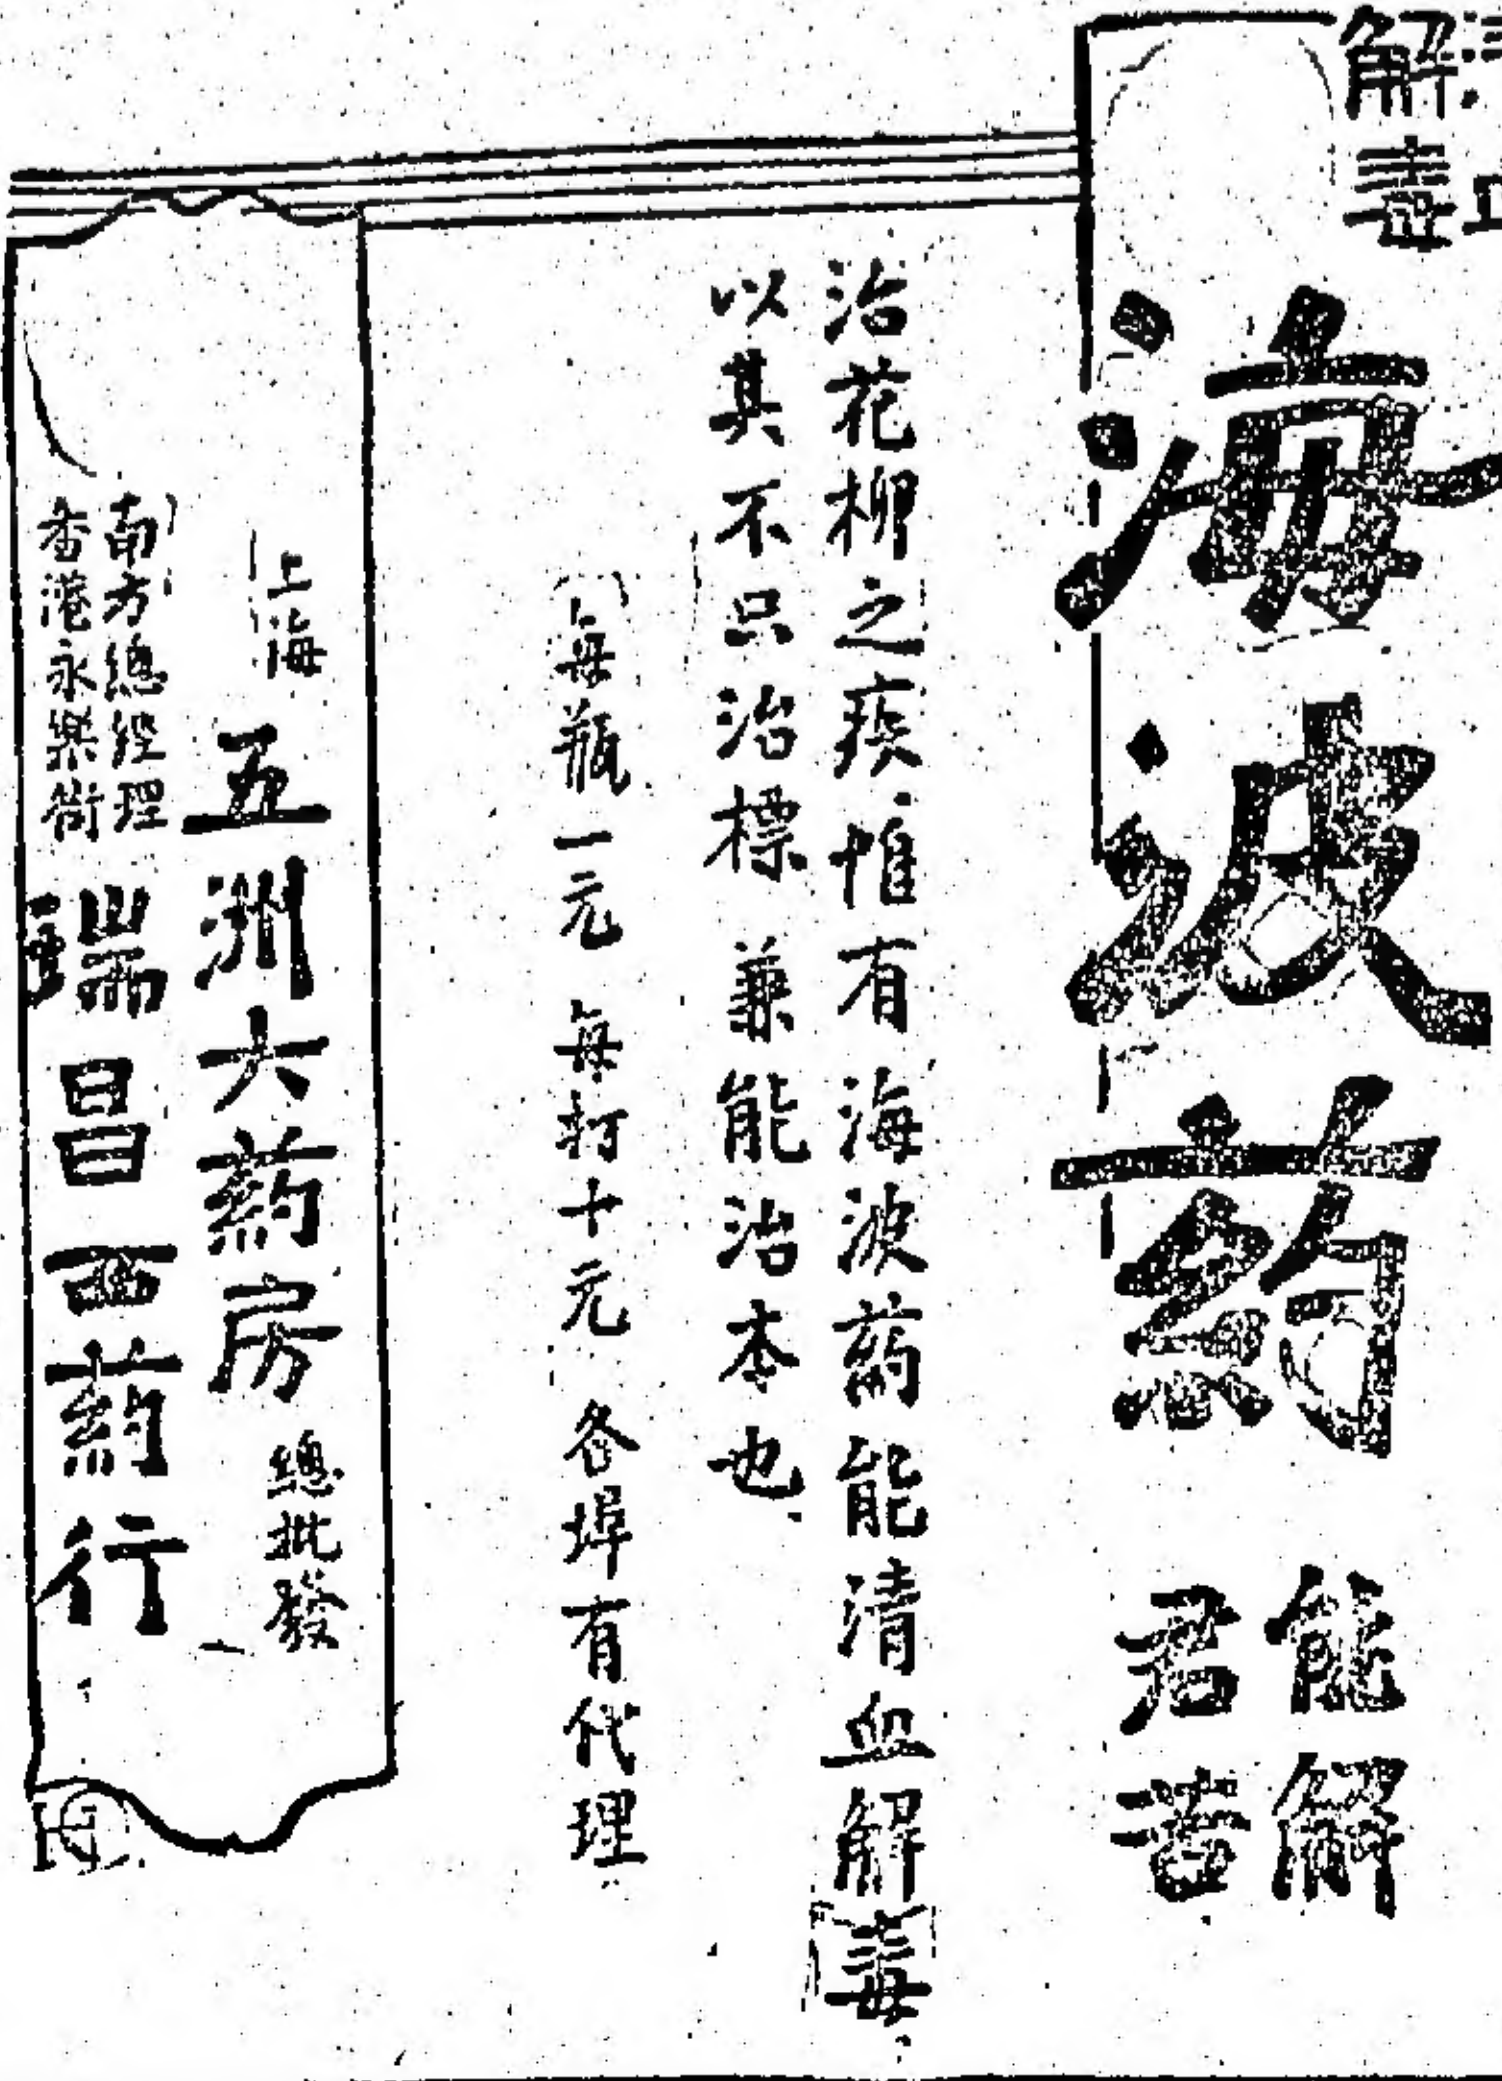 解毒
海波葯
能解
君苦
治花柳之疾惟有海波葯能清血解毒
以其不只治標兼能治本也
每瓶一元 每打十元 各埠有代理
上海 五洲大葯房 總批發
南方總經理
香港永樂街
瑞昌西葯行